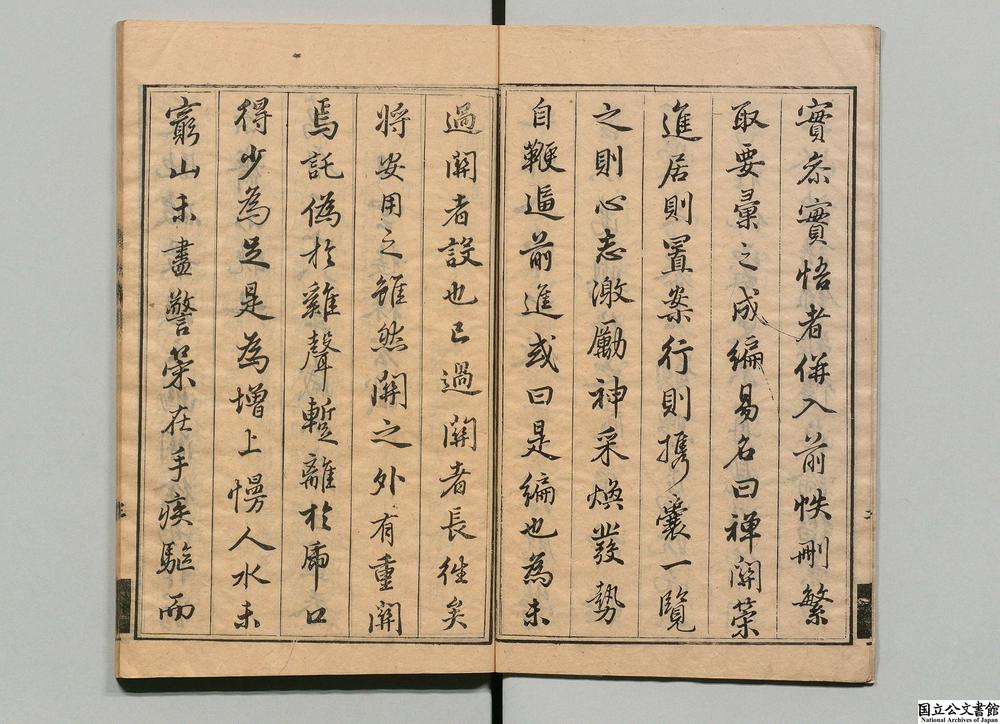 實參實悟者併入前帙刪繁
取要彙之成編易名曰禅関策
進居則置案行則携囊一覽
之則心志激勵神采煥發勢
自鞭逼前進或曰是編也為未
過関者設也已過関者長徃矣
將安用之雖然関之外有重関
焉託偽於雞聲暫離於乕口
得少為足是為增上慢人水未
窮山未盡警策在手疾驅而
国立公文書館
National Archives of Japan